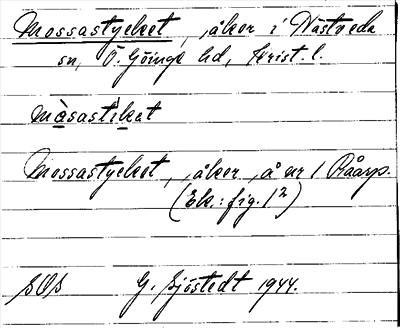 Mossastycket, åker i Nastveda
sn, Ö. Göinge hd, Krist. l.
mòsastikat
Mossastycket, åker, å nr 1 Råarp.
(Ek.: fig. 1²)
SOS G. Sjöstedt 1944.